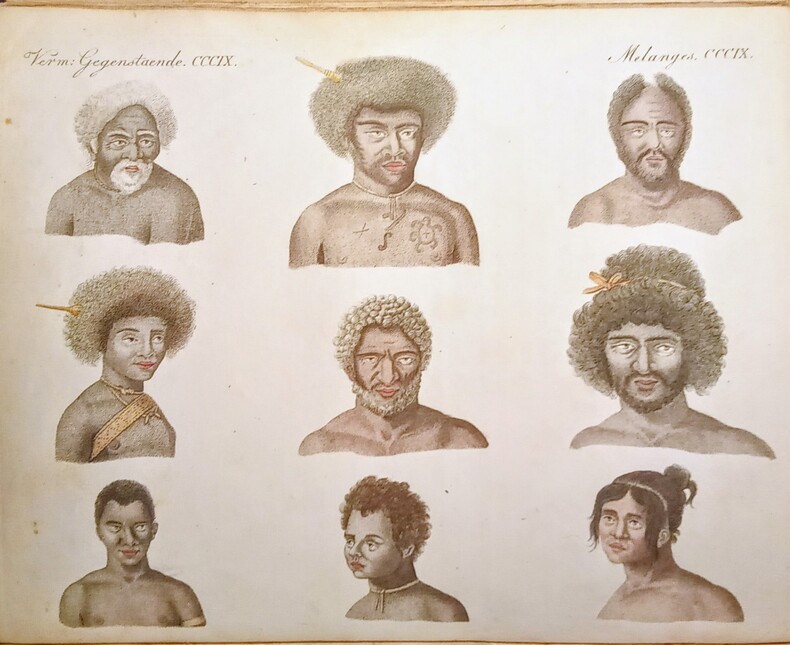 Verm: Gegenstaende. CCCIX.
Melanges. CCCIX.